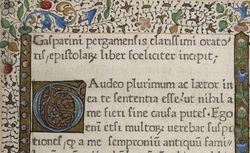 Gasparini pergamensis clarissimi orato
ris, epistolaꝝ liber foeliciter incipit,
GAudeo plurimum ac lætor in
ea te sententia esse, ut nihil a
me fieri sine causa putes. Ego
eni etsi multoꝝ uerebar suspi
tiones, ꝙ a me semproniū antiquū famili